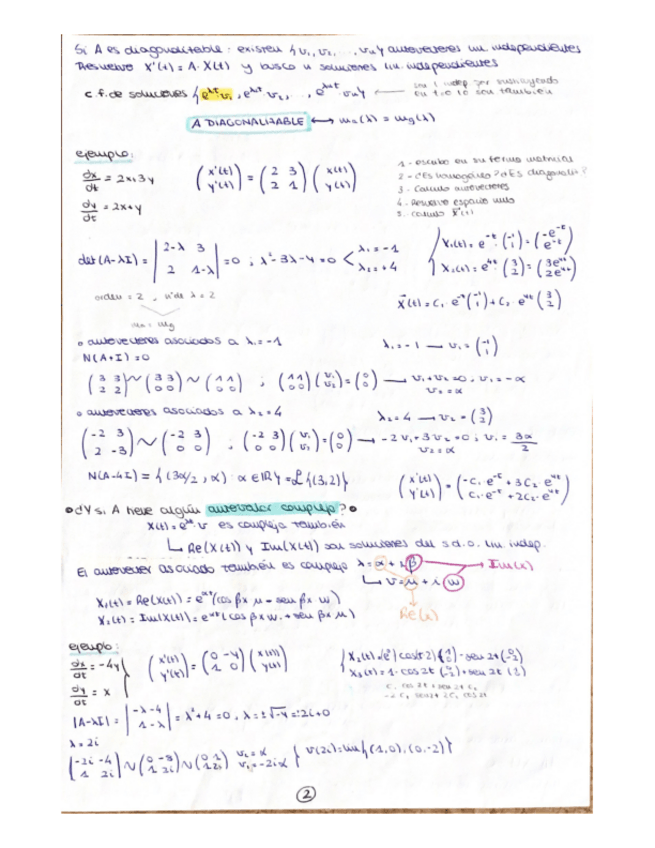 Si A es diagonalizable: existen {v₁, v₂, ..., vₙ} autovectores lin independientes
Resuelvo X'(t) = A·X(t) y busco n soluciones lin. independientes
c.f. de soluciones {e^λt v₁, e^λ₂t v₂, ..., e^λnt vₙ} ← son l indep por sustituyendo en t=0 lo son también
A DIAGONALIZABLE ⟷ mₐ(λ) = mg(λ)
ejemplo:
dx/dt = 2x+3y (x'(t) y'(t)) = (2 3 / 2 1) (x(t) y(t))
dy/dt = 2x+y
1 - escribo en su forma matricial
2 - ¿Es homogéneo? ¿Es diagonaliz?
3 - Calculo autovectores
4. Resuelvo espacio nulo
5. calculo X(t)
det(A-λI) = |2-λ 3 / 2 1-λ| = 0 ; λ²-3λ-4=0 < λ₁=-1 λ₂=+4
{X₁(t) = e^-t (-1 / 1) = (-e^-t / e^-t)
X₂(t) = e^4t (3 / 2) = (3e^4t / 2e^4t)
orden = 2, nº de λ = 2
X(t) = C₁·e^-t (-1 / 1) + C₂·e^4t (3 / 2)
ma = mg
o autovectores asociados a λ₁=-1 λ₁=-1 → v₁=(-1 / 1)
N(A+I)=0
(3 3 / 2 2) ~ (3 3 / 0 0) ~ (1 1 / 0 0) ; (1 1 / 0 0) (v₁ / v₂) = (0 / 0) → v₁+v₂=0, v₁=-α
v₂=α
o autovectores asociados a λ₂=4 λ₂=4 → v₂=(3 / 2)
(-2 3 / 2 -3) ~ (-2 3 / 0 0) , (-2 3 / 0 0) (v₁ / v₁) = (0 / 0) → -2v₁+3v₂=0 ; v₁=3α/2
v₂=α
N(A-4I) = {(3α/2, α) · α∈ℝ} = ℒ{(3,2)} (x'(t) / y'(t)) = (-C₁·e^-t + 3C₂·e^4t / C₁·e^-t + 2C₂·e^4t)
¿Y si A tiene algún autovalor complejo?
X(t) = e^λt·v es compleja también
↳ Re(X(t)) y Im(X(t)) son soluciones del s.d.o. lin. indep.
El autovector asociado también es complejo λ=α+iβ → Im(x)
↳ v=u+i w
X₁(t) = Re(X(t)) = e^αt (cos βx u - sen βx w)
X₂(t) = Im(X(t)) = e^αt (cos βx w + sen βx u)
Re(x)
ejemplo:
dx/dt = -4y
dy/dt = x
(x'(t) / y'(t)) = (0 -4 / 1 0) (x(t) / y(t))
|A-λI| = |-λ -4 / 1 -λ| = λ²+4=0, λ=±√-4=±2i+0
λ=2i
|-2i -4 / 1 2i|
(2)